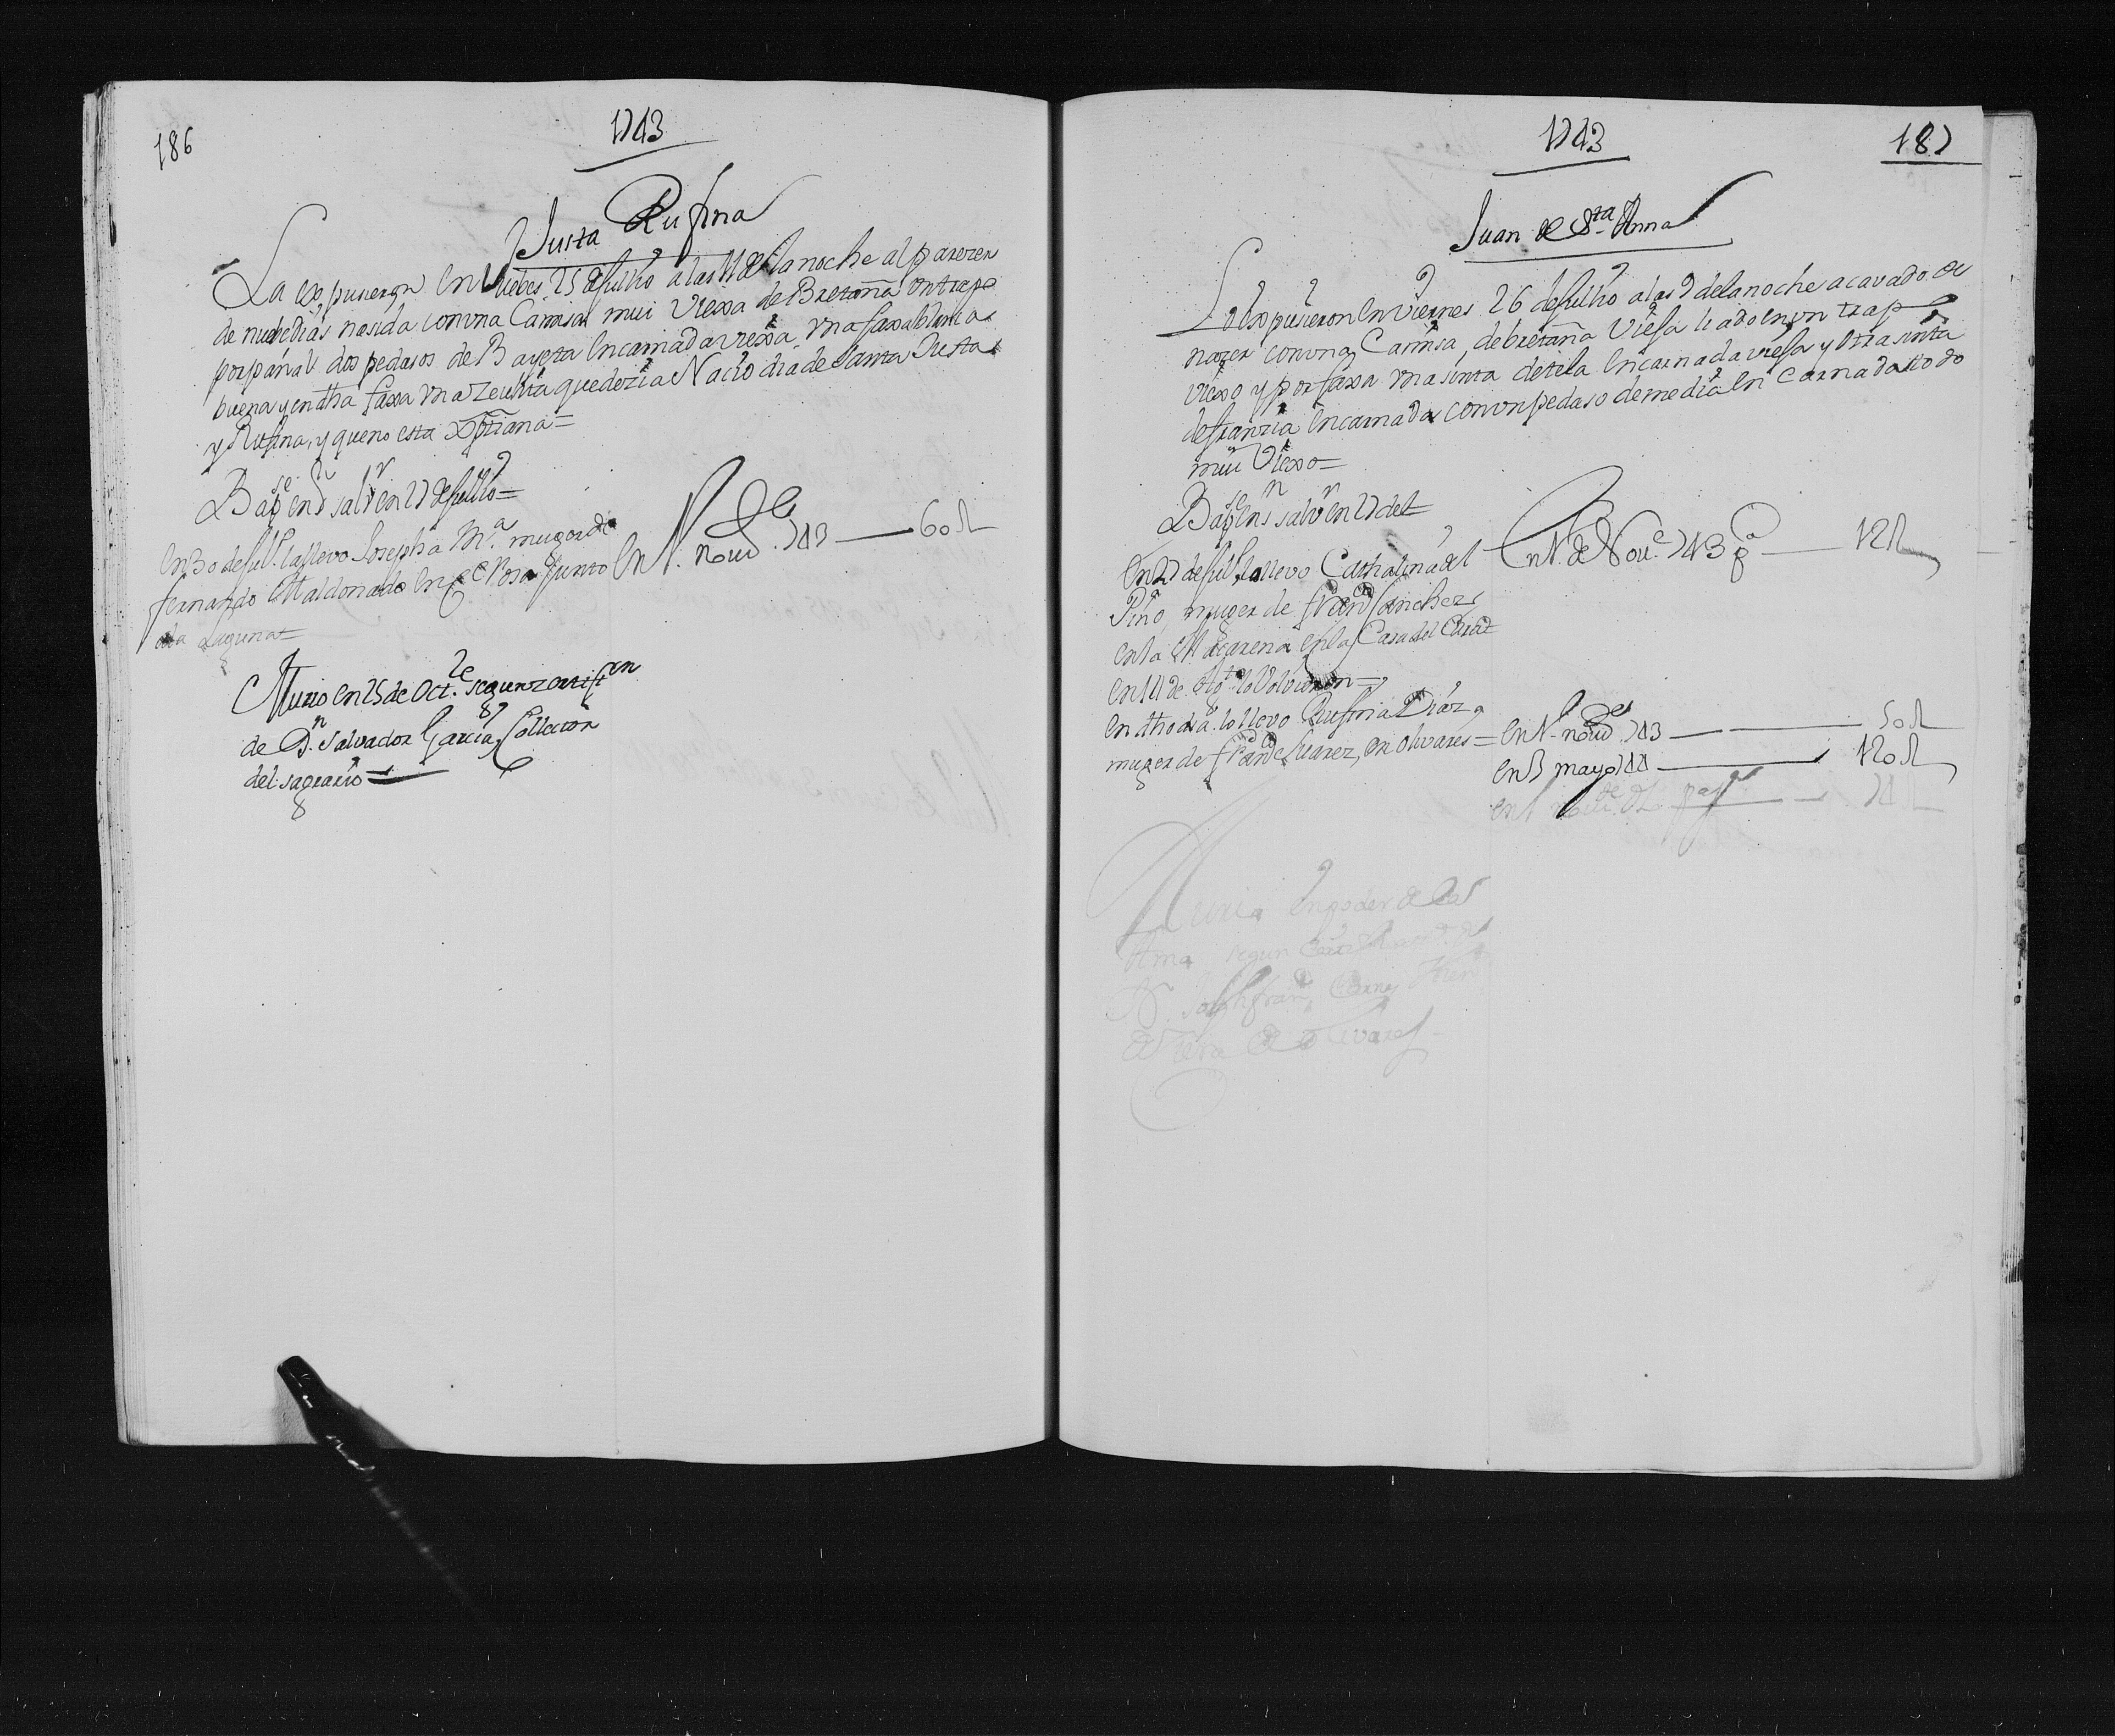 186
1743
Justa Rufina
La expusieron en Juebes 25 de Jullio a las 11 de la noche al parezer
de nuebe dias nasida con una Camisa mui Viexa de Bretaña un trapo
por pañal dos pedasos de Bayeta Encarnada viexa, una faxa blanca
buena y en dha faxa una zedulita que dezia Nacio dia de Santa Justa
y Rufina, y que no esta Xptiana=
Bapse en Sn Salvr en 27 de Jullio=
en 30 de Jul. la llevo Josepha Ma. muger de
fernando Maldonado en Cce Rosa Junto
a la Laguna=
En 1. Novie. 743 — 60 R
Murio en 25 de Octe. segun zertifon
de Dn. Salvador Garcia Collector
del sagrario=
1743
187
Juan de Sta Anna
Lo expusieron en Viernes 26 de Jullio a las 9 de la noche acavado de
nazer con una Camisa, de bretaña Viesa liado en un trapo
viexo y por faxa una sinta de tela Encarnada viesa y otra sinta
de franzia Encarnada con un pedaso de media Encarnada todo
mui Viexo=
Bapse en Sn Salvr en 27 del=
En 27 de Jul lo llevo Cathalina del
Pino, muger de Franco Sanchez
en la Macarena en la Casa del
en 14 de Agto lo Volvieron=
En 1. de Nove. 743 pa — 12 R
en dho dia lo llevo Rufina Diaz
muger de Franco Suarez, en olivares=
en 1. novie 743 — 50 R
en 3 mayo 744 — 120 R
en 1 — 74 R
Murio En poder de la
Ama segun
Dn. Joseph Fran Cura
de Olivares